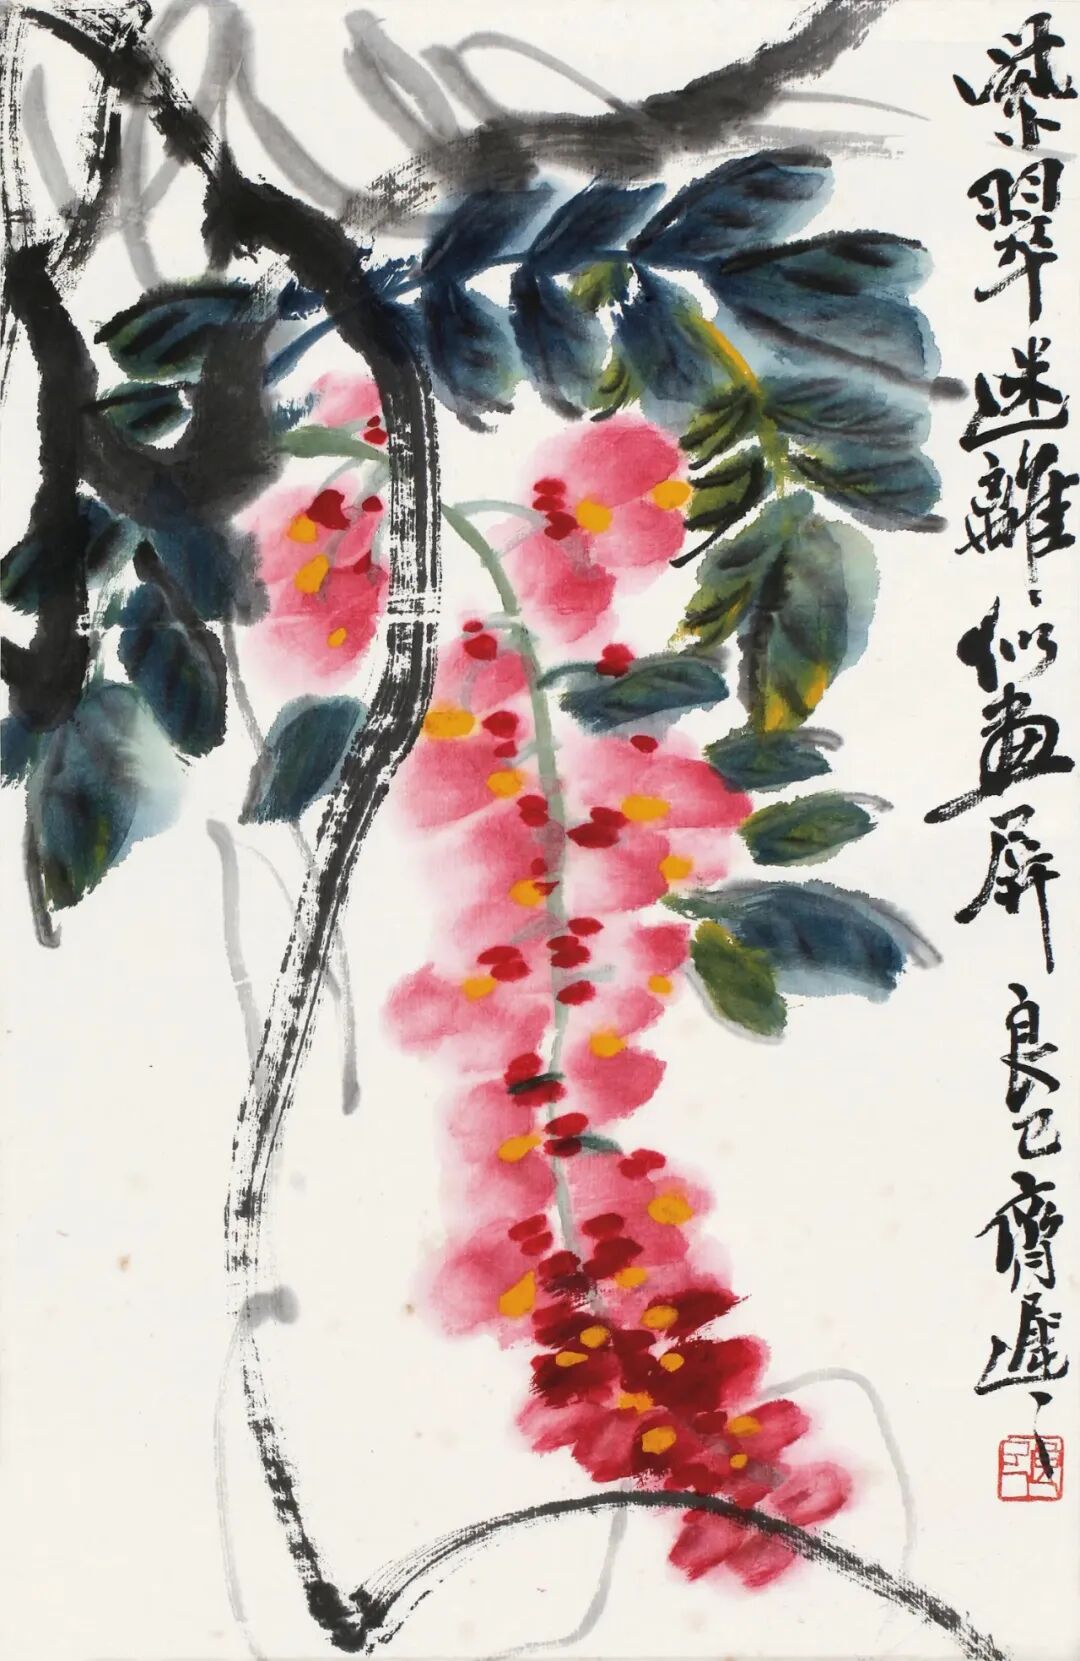 紫翠迷離似畫屏 良已齊遲〻